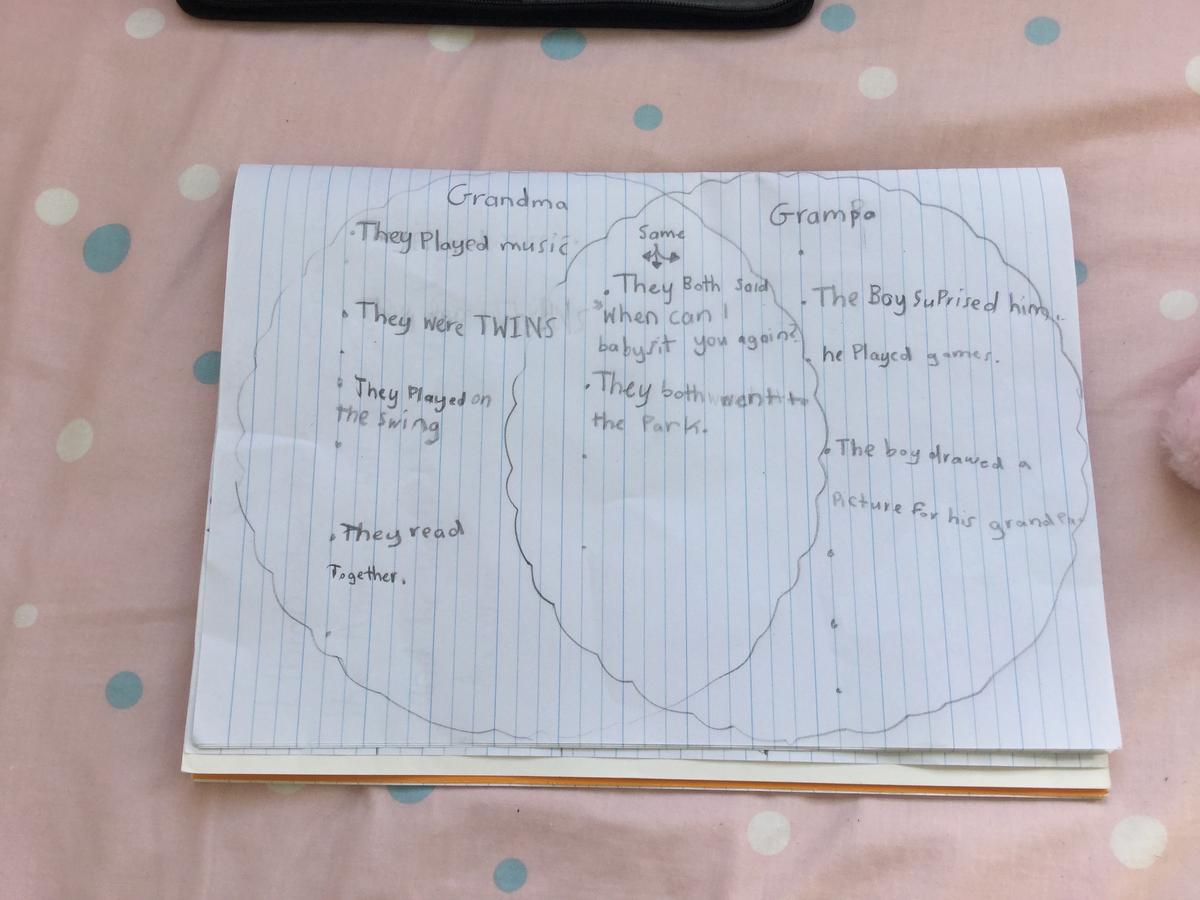 Grandma
• They Played music
• They were TWINS
• They Played on
the swing
• They read
Together.
Same
• They Both said
"when can I
babysit you again?
• They both went to
the Park.
Grampa
• The Boy suPrised him.
• he Played games.
• The boy drawed a
Picture for his